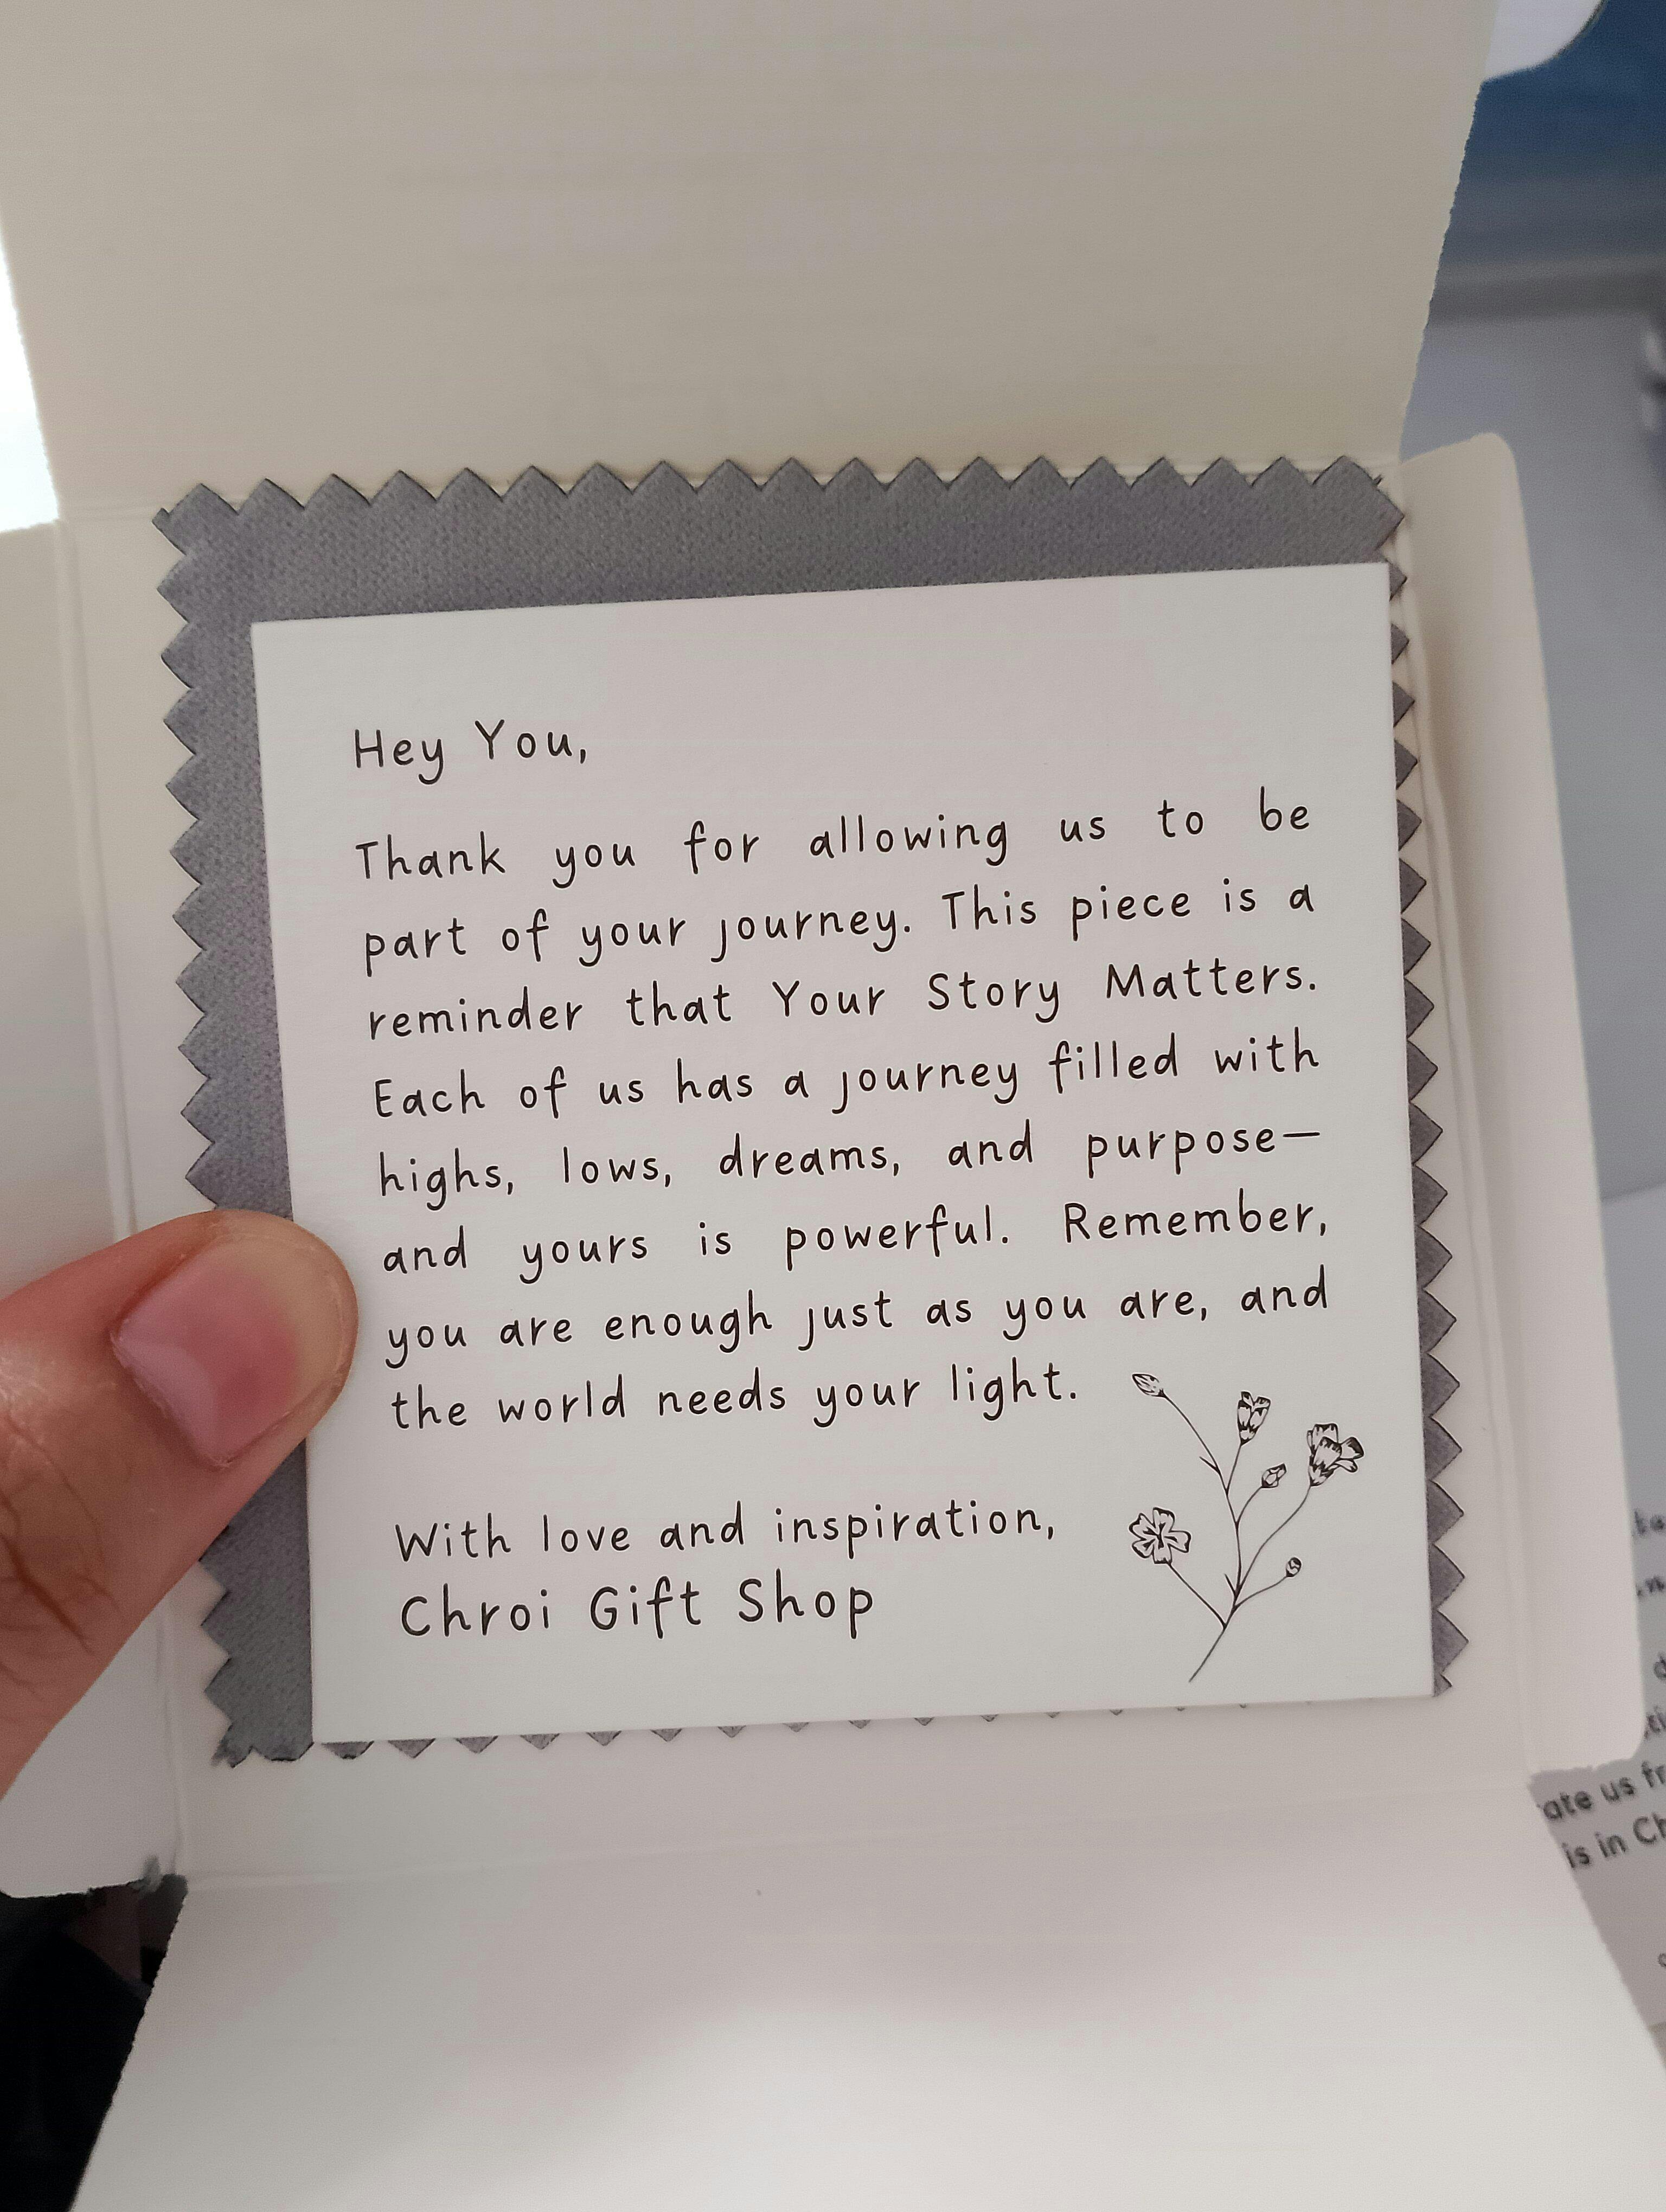 Hey You,
Thank you for allowing us to be
part of your journey. This piece is a
reminder that Your Story Matters.
Each of us has a journey filled with
highs, lows, dreams, and purpose—
and yours is powerful. Remember,
you are enough just as you are, and
the world needs your light.
With love and inspiration,
Chroi Gift Shop
us
is in